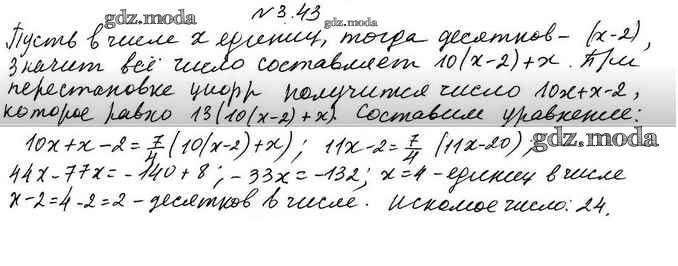 №3.43
gdz.moda
gdz.moda
Пусть в числе x единиц, тогда десятков – (x-2),
значит всё число составляет 10(x-2)+x. При
gdz.moda
gdz.moda
перестановке цифр получится число 10x+x-2,
которое равно 13(10(x-2)+x). Составим уравнение:
10x+x-2=7/4(10(x-2)+x); 11x-2=7/4(11x-20);
gdz.moda
44x-77x=-140+8; -33x=-132; x=4 - единиц в числе
x-2=4-2=2 - десятков в числе. Искомое число: 24.